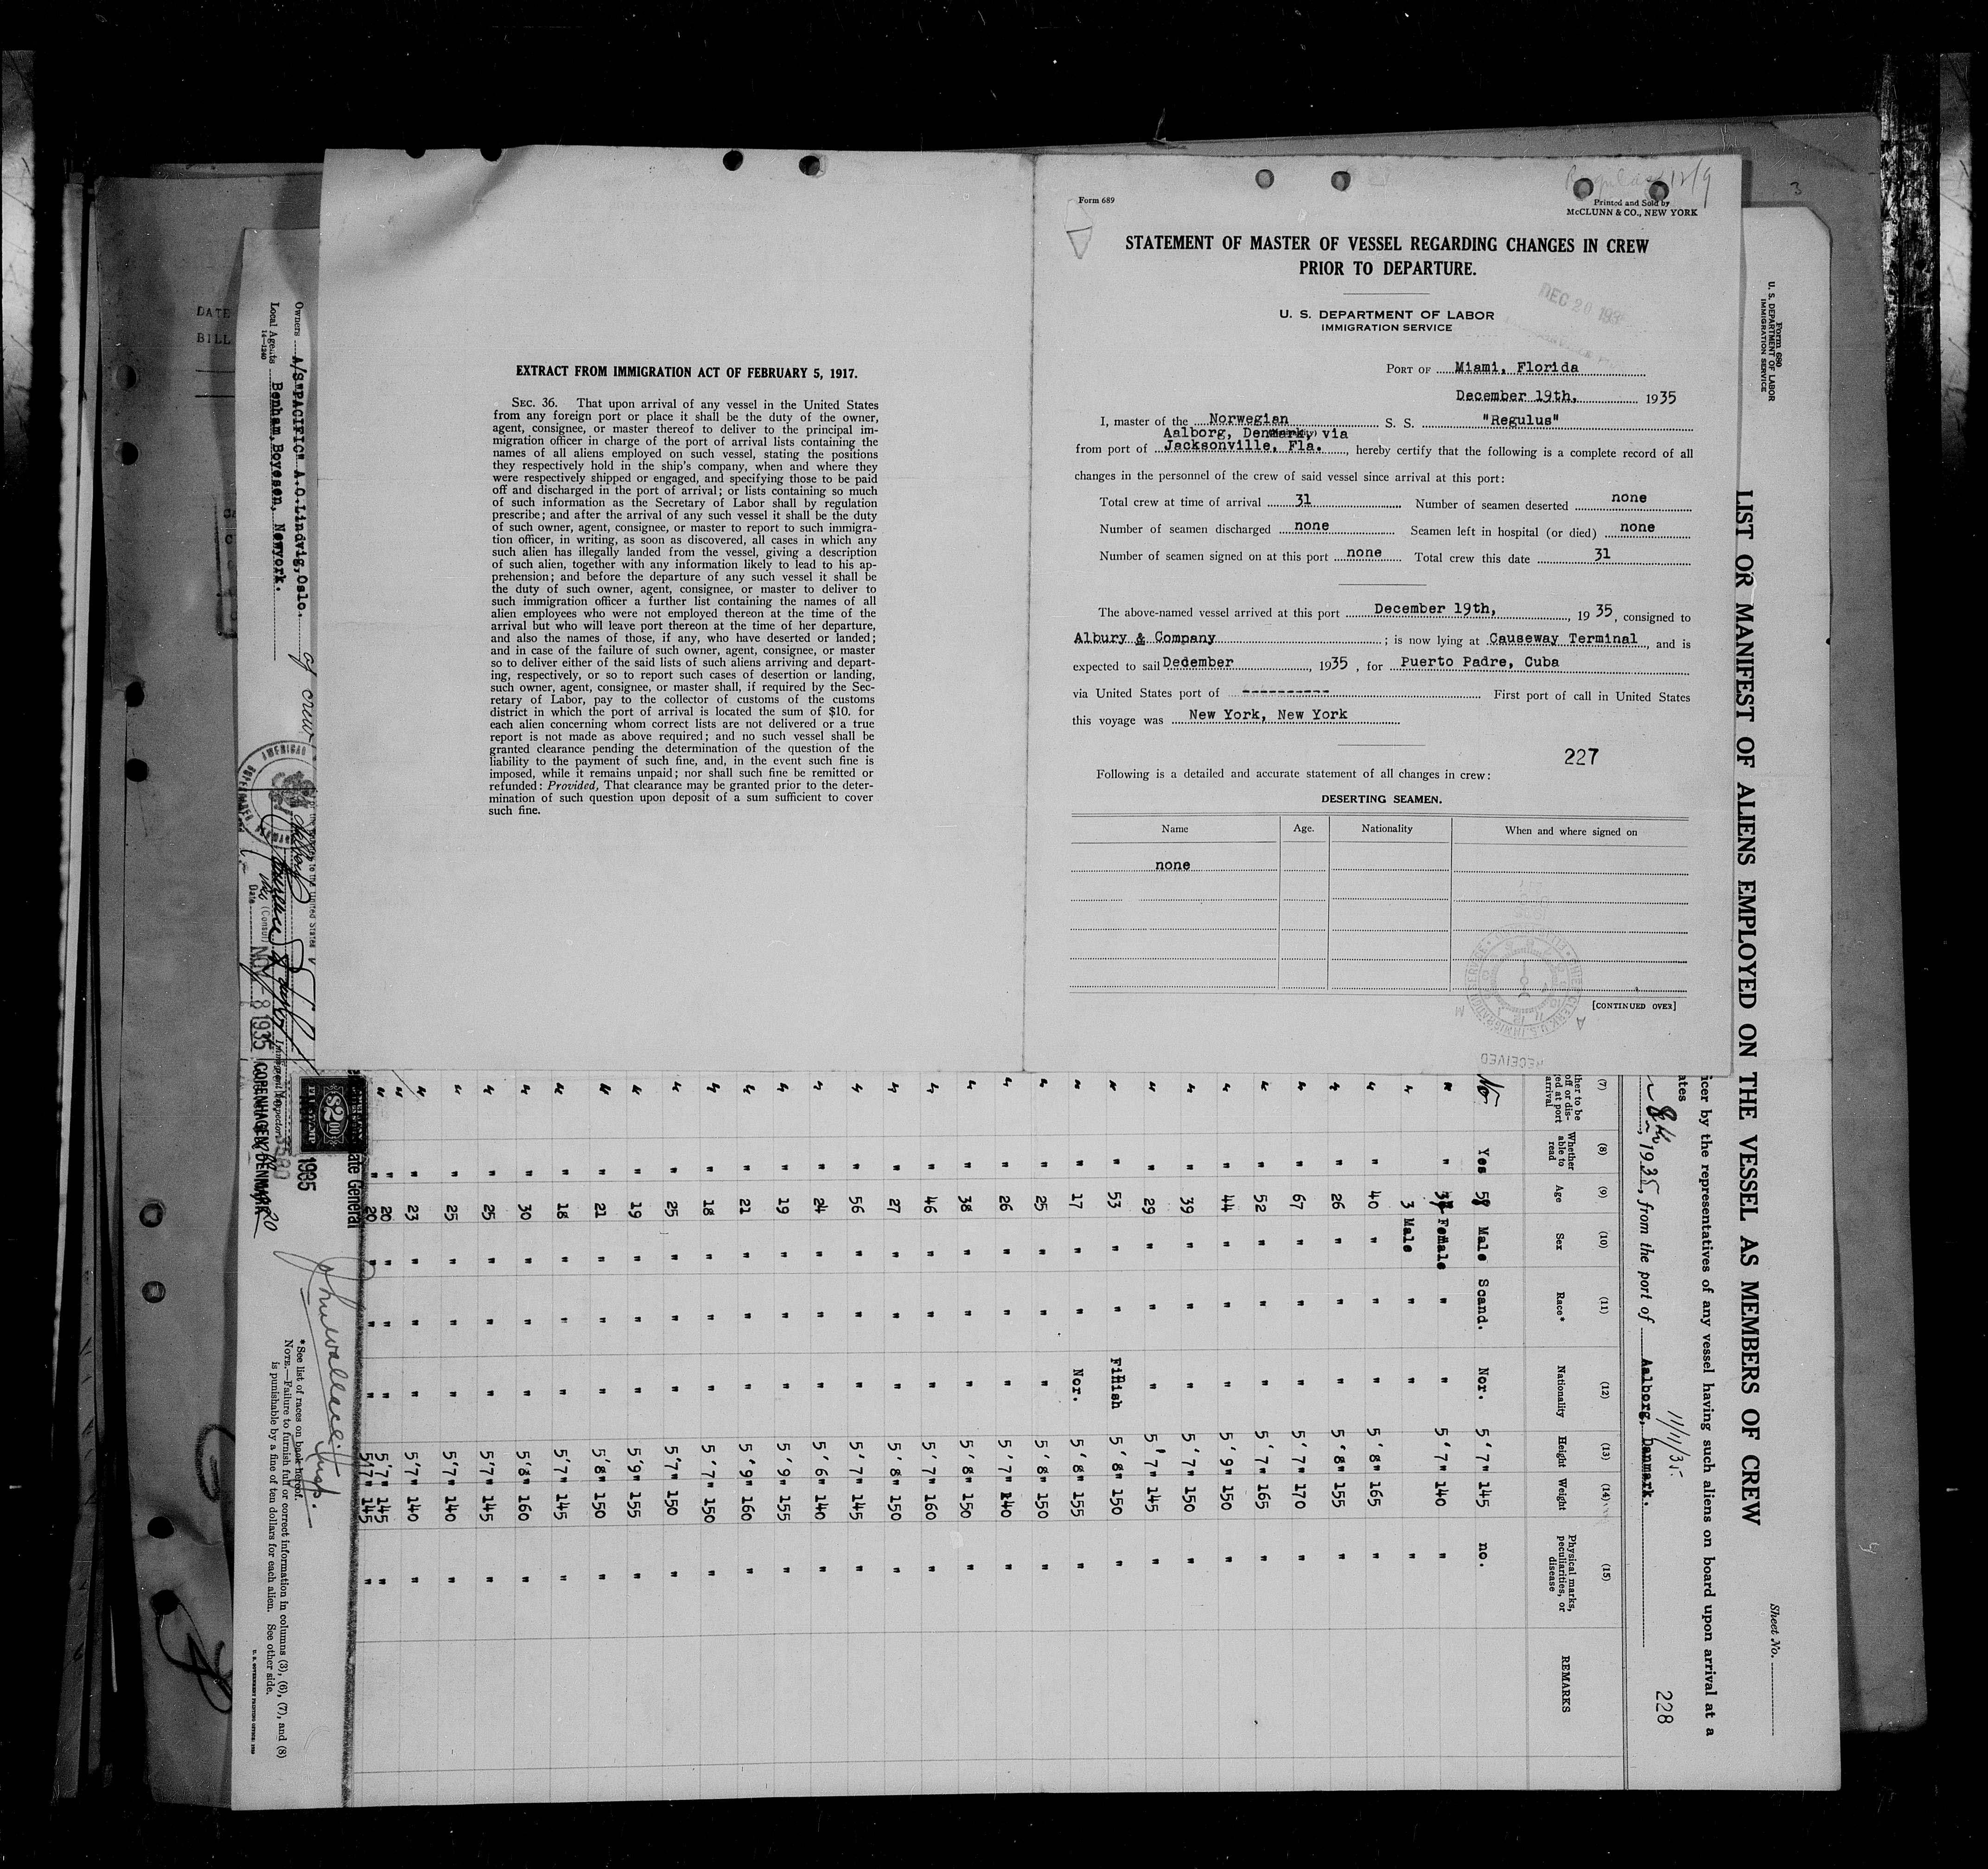 EXTRACT FROM IMMIGRATION ACT OF FEBRUARY 5, 1917.
SEC. 36. That upon arrival of any vessel in the United States
from any foreign port or place it shall be the duty of the owner,
agent, consignee, or master thereof to deliver to the principal im-
migration officer in charge of the port of arrival lists containing the
names of all aliens employed on such vessel, stating the positions
they respectively hold in the ship's company, when and where they
were respectively shipped or engaged, and specifying those to be paid
off and discharged in the port of arrival; or lists containing so much
of such information as the Secretary of Labor shall by regulation
prescribe; and after the arrival of any such vessel it shall be the duty
of such owner, agent, consignee, or master to report to such immigra-
tion officer, in writing, as soon as discovered, all cases in which any
such alien has illegally landed from the vessel, giving a description
of such alien, together with any information likely to lead to his ap-
prehension; and before the departure of any such vessel it shall be
the duty of such owner, agent, consignee, or master to deliver to
such immigration officer a further list containing the names of all
alien employees who were not employed thereon at the time of the
arrival but who will leave port thereon at the time of her departure,
and also the names of those, if any, who have deserted or landed;
and in case of the failure of such owner, agent, consignee, or master
so to deliver either of the said lists of such aliens arriving and depart-
ing, respectively, or so to report such cases of desertion or landing,
such owner, agent, consignee, or master shall, if required by the Sec-
retary of Labor, pay to the collector of customs of the customs
district in which the port of arrival is located the sum of $10. for
each alien concerning whom correct lists are not delivered or a true
report is not made as above required; and no such vessel shall be
granted clearance pending the determination of the question of the
liability to the payment of such fine, and, in the event such fine is
imposed, while it remains unpaid; nor shall such fine be remitted or
refunded: Provided, That clearance may be granted prior to the deter-
mination of such question upon deposit of a sum sufficient to cover
such fine.
Form 689
Regulus 12/9
Printed and Sold by
McCLUNN & CO., NEW YORK
STATEMENT OF MASTER OF VESSEL REGARDING CHANGES IN CREW
PRIOR TO DEPARTURE.
DEC 20 193
U. S. DEPARTMENT OF LABOR
IMMIGRATION SERVICE
PORT OF Miami, Florida
December 19th, 1935
I, master of the Norwegian S. S. "Regulus"
Aalborg, Denmark, via
from port of Jacksonville, Fla., hereby certify that the following is a complete record of all
changes in the personnel of the crew of said vessel since arrival at this port:
Total crew at time of arrival 31 Number of seamen deserted none
Number of seamen discharged none Seamen left in hospital (or died) none
Number of seamen signed on at this port none Total crew this date 31
The above-named vessel arrived at this port December 19th, 1935, consigned to
Albury & Company; is now lying at Causeway Terminal, and is
expected to sail Dedember, 1935, for Puerto Padre, Cuba
via United States port of ---------- First port of call in United States
this voyage was New York, New York
227
Following is a detailed and accurate statement of all changes in crew:
DESERTING SEAMEN.
Name Age. Nationality When and where signed on
none
[CONTINUED OVER]
RECEIVED
Form 680
U. S. DEPARTMENT OF LABOR
IMMIGRATION SERVICE
Sheet No.
LIST OR MANIFEST OF ALIENS EMPLOYED ON THE VESSEL AS MEMBERS OF CREW
icer by the representatives of any vessel having such aliens on board upon arrival at a
ates
8th, 1935, from the port of Aalborg, Danmark.
11/11/35
228
(7) (8) (9) (10) (11) (12) (13) (14) (15)
ther to be off or dis- ed at port arrival
Whether able to read
Age
Sex
Race*
Nationality
Height
Weight
Physical marks, peculiarities, or disease
REMARKS
No Yes 58 Male Scand. Nor. 5'7" 145 no.
" " Female " " 5'7" 140 "
" 3 Male " " "
" " 40 " " " 5'8" 165 "
" " 26 " " " 5'8" 155 "
" " 67 " " " 5'7" 170 "
" " 52 " " " 5'7" 165 "
" " 44 " " " 5'9" 150 "
" " 39 " " " 5'7" 150 "
" " 29 " " " 5'7" 145 "
" " 53 " " Finish 5'8" 150 "
" " 17 " " Nor. 5'8" 155 "
" " 25 " " " 5'8" 150 "
" " 26 " " " 5'7" 140 "
" " 38 " " " 5'8" 150 "
" " 46 " " " 5'7" 160 "
" " 27 " " " 5'8" 150 "
" " 56 " " " 5'7" 145 "
" " 24 " " " 5'6" 140 "
" " 19 " " " 5'9" 155 "
" " 21 " " " 5'9" 160 "
" " 18 " " " 5'7" 150 "
" " 25 " " " 5'7" 150 "
" " 19 " " " 5'9" 155 "
" " 21 " " " 5'8" 150 "
" " 18 " " " 5'7" 145 "
" " 30 " " " 5'8" 160 "
" " 25 " " " 5'7" 145 "
" " 25 " " " 5'7" 140 "
" " 23 " " " 5'7" 140 "
" " 20 " " " 5'7" 145 "
" " 20 " " " 5'7" 145 "
ate General
$2.00
FEE STAMP
1935
Immigrant Inspector
Owners A/S "PACIFIC" A.O.Lindvig, Oslo.
Local Agents Benham, Boyesen, Newyork.
14-1240
of crew
the United States
AMERICAN
Aalborg
(Consul)
Date NOV - 8 1935
COPENHAGEN, DENMARK
3580
*See list of races on back hereof.
NOTE.—Failure to furnish full or correct information in columns (3), (6), (7), and (8)
is punishable by a fine of ten dollars for each alien. See other side.
U. S. GOVERNMENT PRINTING OFFICE
DATE
BILL
3